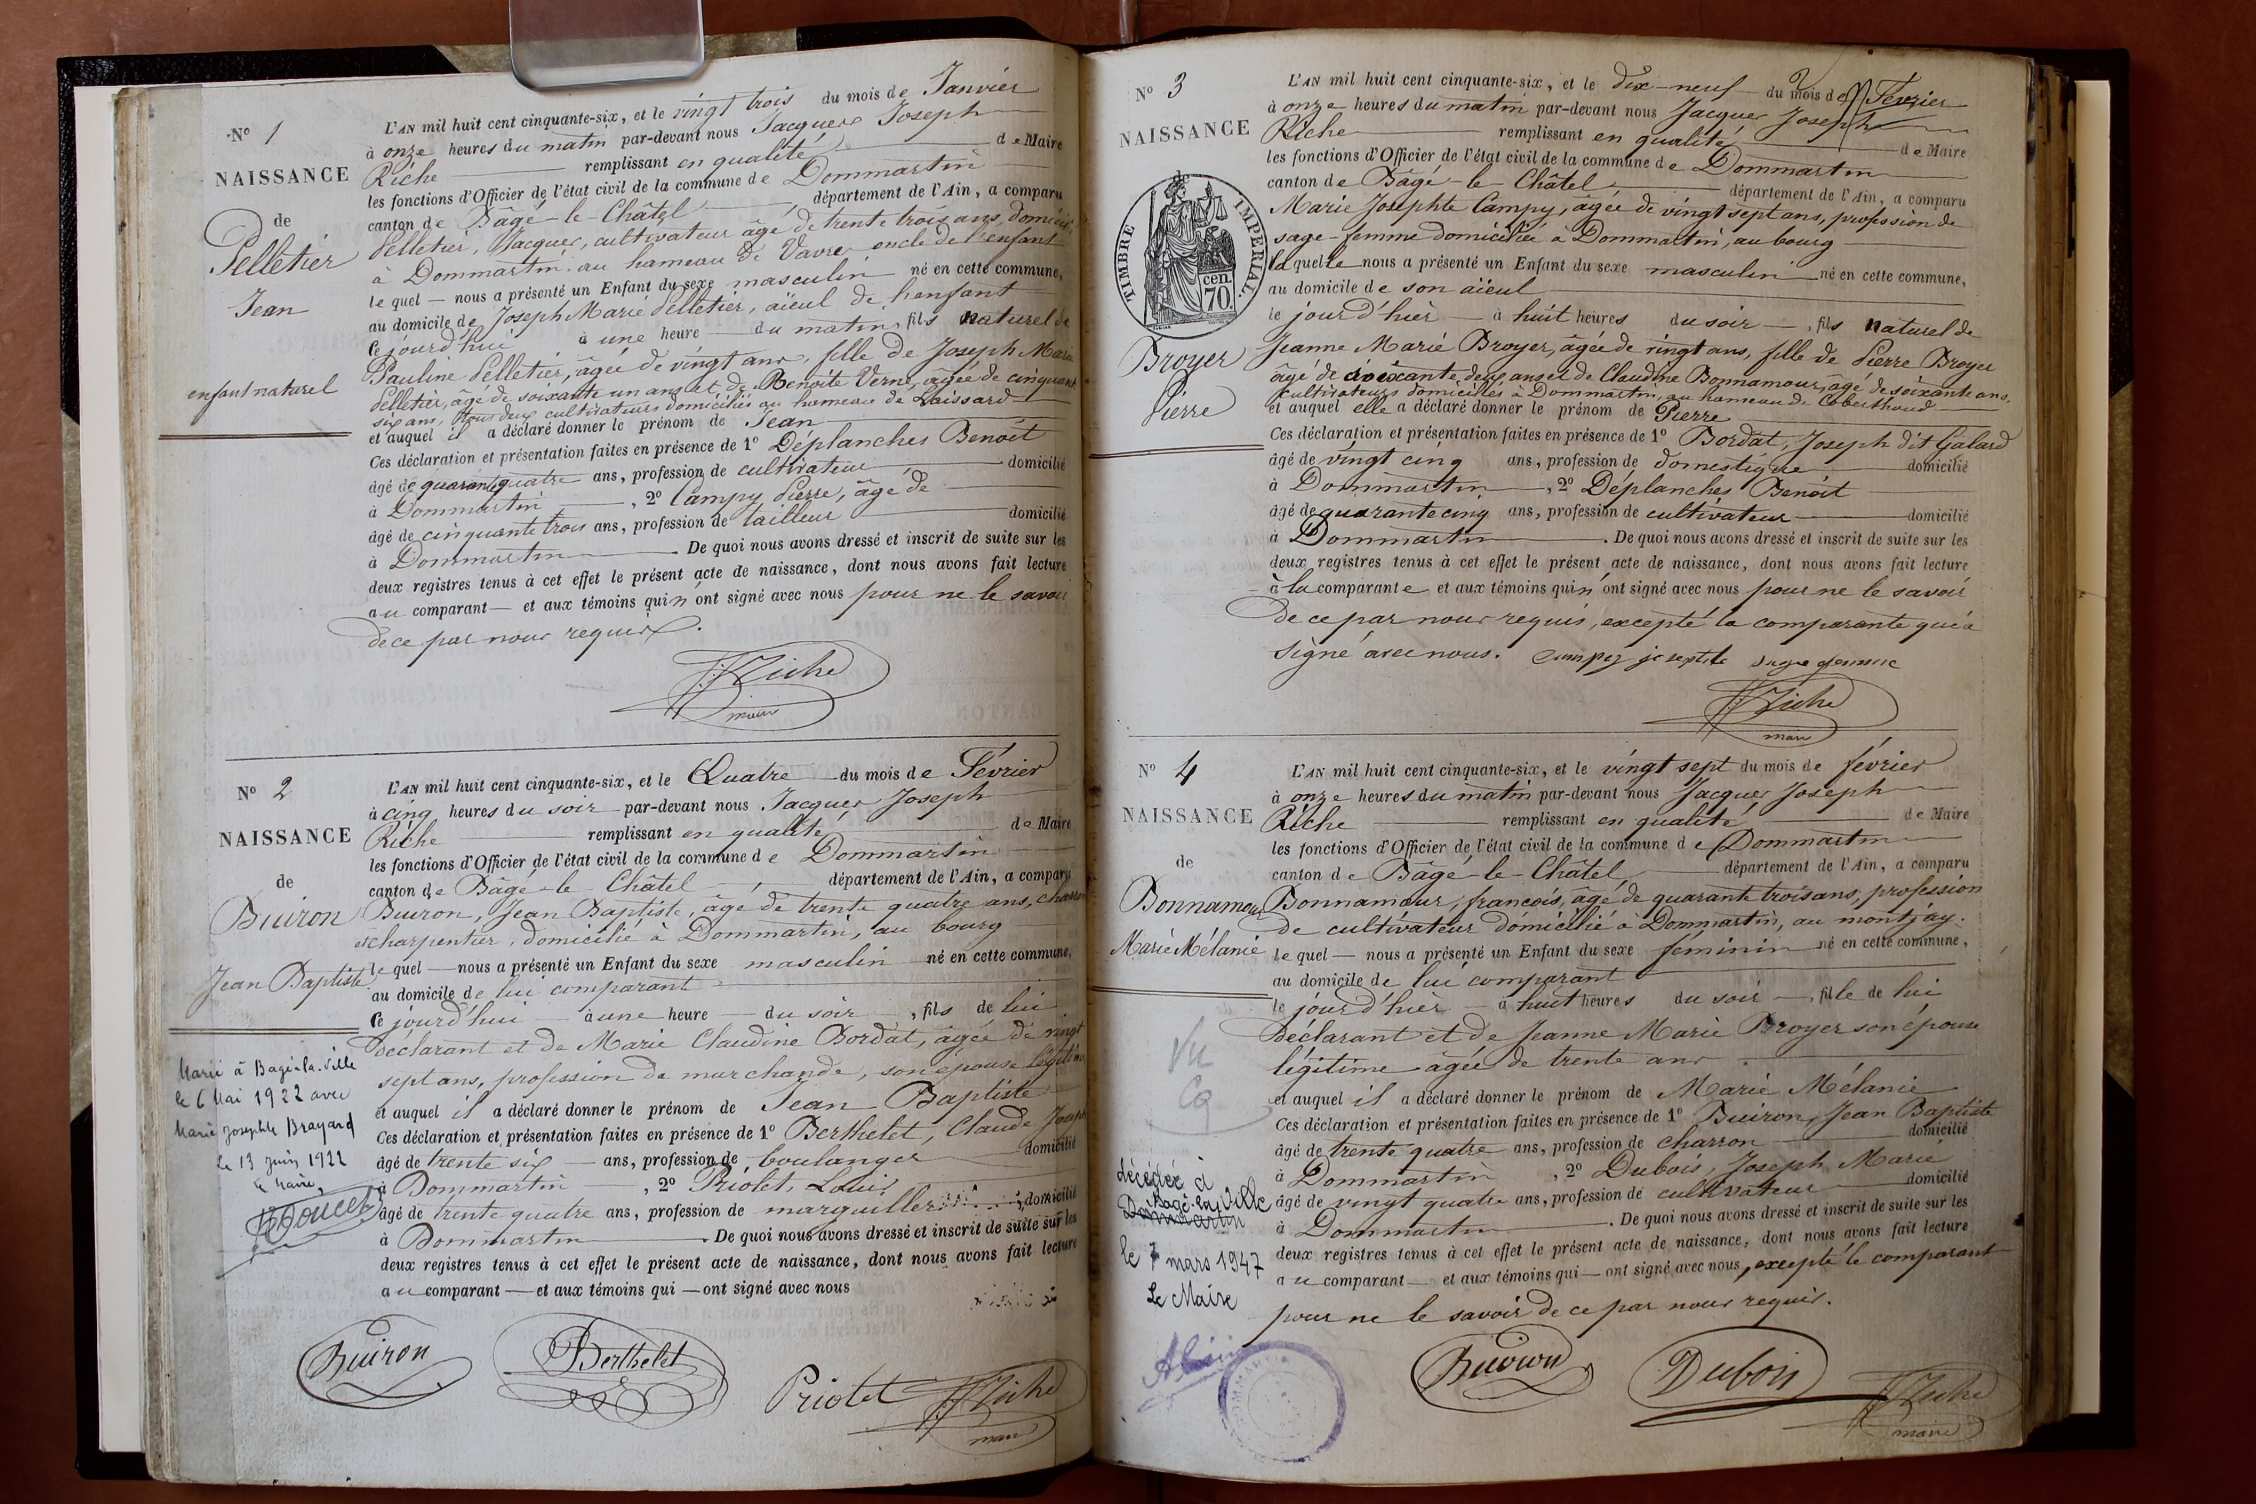 N° 1
NAISSANCE
de
Pelletier
Jean
enfant naturel
L'AN mil huit cent cinquante-six, et le vingt trois du mois de Janvier
à onze heures du matin par-devant nous Jacques Joseph
Riche remplissant en qualité de Maire
les fonctions d'Officier de l'état civil de la commune de Dommartin
canton de Bâgé-le-Châtel, département de l'Ain, a comparu
Pelletier, Jacques, cultivateur âgé de trente trois ans, domicilié
à Dommartin au hameau de Vavre oncle de l'enfant
le quel — nous a présenté un Enfant du sexe masculin né en cette commune,
au domicile de Joseph Marie Pelletier, aïeul de l'enfant
ce jourd'hui à une heure du matin, fils naturel de
Pauline Pelletier, âgée de vingt ans, fille de Joseph Marie
Pelletier, âgé de soixante un ans et de Benoîte Verne, âgée de cinquante
six ans, tous deux cultivateurs domiciliés au hameau de Laissard
et auquel il a déclaré donner le prénom de Jean
Ces déclaration et présentation faites en présence de 1° Déplanches Benoît
âgé de quarante quatre ans, profession de cultivateur domicilié
à Dommartin, 2° Campy Pierre, âgé de
âgé de cinquante trois ans, profession de tailleur domicilié
à Dommartin. De quoi nous avons dressé et inscrit de suite sur les
deux registres tenus à cet effet le présent acte de naissance, dont nous avons fait lecture
au comparant — et aux témoins qui n'ont signé avec nous pour ne le savoir
de ce par nous requis.
JJ Riche
maire
N° 2
NAISSANCE
de
Buiron
Jean Baptiste
Marié à Bagé-la-Ville
le 6 Mai 1922 avec
Marie Josephte Brayard
le 13 Juin 1922
le Maire,
L'AN mil huit cent cinquante-six, et le Quatre du mois de Février
à cinq heures du soir par-devant nous Jacques Joseph
Riche remplissant en qualité de Maire
les fonctions d'Officier de l'état civil de la commune de Dommartin
canton de Bâgé-le-Châtel, département de l'Ain, a comparu
Buiron, Jean Baptiste, âgé de trente quatre ans, charron
et charpentier, domicilié à Dommartin, au bourg
le quel — nous a présenté un Enfant du sexe masculin né en cette commune,
au domicile de lui comparant
ce jourd'hui à une heure du soir, fils de lui
déclarant et de Marie Claudine Bordat, âgée de vingt
sept ans, profession de marchande, son épouse légitime
et auquel il a déclaré donner le prénom de Jean Baptiste
Ces déclaration et présentation faites en présence de 1° Berthelet, Claude Joseph
âgé de trente six ans, profession de boulanger domicilié
à Dommartin, 2° Priolet, Louis
âgé de trente quatre ans, profession de marguiller domicilié
à Dommartin. De quoi nous avons dressé et inscrit de suite sur les
deux registres tenus à cet effet le présent acte de naissance, dont nous avons fait lecture
au comparant — et aux témoins qui — ont signé avec nous
Buiron Berthelet Priolet JJ Riche
maire
N° 3
NAISSANCE
TIMBRE IMPÉRIAL.
70 cen.
Broyer
Pierre
L'AN mil huit cent cinquante-six, et le dix-neuf du mois de Février
à onze heures du matin par-devant nous Jacques Joseph
Riche remplissant en qualité de Maire
les fonctions d'Officier de l'état civil de la commune de Dommartin
canton de Bâgé-le-Châtel département de l'Ain, a comparu
Marie Josephte Campy, âgée de vingt sept ans, profession de
sage-femme domiciliée à Dommartin, au bourg
laquelle nous a présenté un Enfant du sexe masculin né en cette commune,
au domicile de son aïeul
le jour d'hier à huit heures du soir, fils naturel de
Jeanne Marie Broyer, âgée de vingt ans, fille de Pierre Broyer
âgé de soixante deux ans et de Claudine Bonnamour, âgé de soixante ans,
cultivateurs domiciliés à Dommartin, au hameau de Coberthoud
et auquel elle a déclaré donner le prénom de Pierre
Ces déclaration et présentation faites en présence de 1° Bordat, Joseph dit Galard
âgé de vingt cinq ans, profession de domestique domicilié
à Dommartin, 2° Déplanches Benoît
âgé de quarante cinq ans, profession de cultivateur domicilié
à Dommartin. De quoi nous avons dressé et inscrit de suite sur les
deux registres tenus à cet effet le présent acte de naissance, dont nous avons fait lecture
à la comparante et aux témoins qui n'ont signé avec nous pour ne le savoir
de ce par nous requis, excepté la comparante qui a
signé avec nous. campy josephte sage femme
JJ Riche
maire
N° 4
NAISSANCE
de
Bonnamour
Marie Mélanie
Vu
décédée à
Bagé-la-Ville
Dommartin
le 7 mars 1947
Le Maire
L'AN mil huit cent cinquante-six, et le vingt sept du mois de février
à onze heures du matin par-devant nous Jacques Joseph
Riche remplissant en qualité de Maire
les fonctions d'Officier de l'état civil de la commune de Dommartin
canton de Bâgé-le-Châtel, département de l'Ain, a comparu
Bonnamour, françois, âgé de quarante trois ans, profession
de cultivateur domicilié à Dommartin, au montjay.
le quel — nous a présenté un Enfant du sexe féminin né en cette commune,
au domicile de lui comparant
le jour d'hier à huit heures du soir, fille de lui
déclarant et de Jeanne Marie Broyer son épouse
légitime âgée de trente ans
et auquel il a déclaré donner le prénom de Marie Mélanie
Ces déclaration et présentation faites en présence de 1° Buiron, Jean Baptiste
âgé de trente quatre ans, profession de charron domicilié
à Dommartin, 2° Dubois, Joseph Marie
âgé de vingt quatre ans, profession de cultivateur domicilié
à Dommartin. De quoi nous avons dressé et inscrit de suite sur les
deux registres tenus à cet effet le présent acte de naissance, dont nous avons fait lecture
au comparant — et aux témoins qui — ont signé avec nous, excepté le comparant
pour ne le savoir de ce par nous requis.
Buiron Dubois JJ Riche
maire